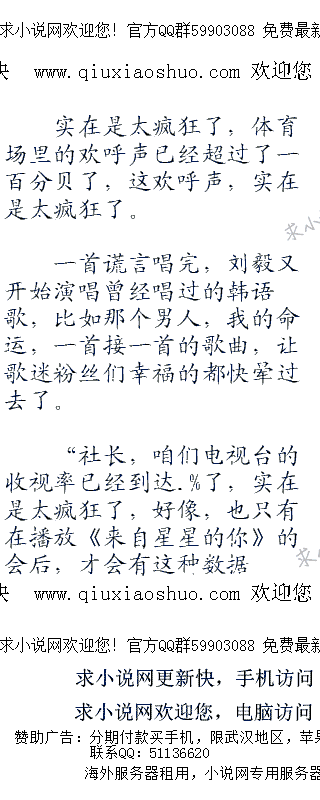 求小说网欢迎您! 官方QQ群59903088 免费最新
快 www.qiuxiaoshuo.com 欢迎您
实在是太疯狂了，体育
场里的欢呼声已经超过了一
百分贝了，这欢呼声，实在
是太疯狂了。
求小
一首谎言唱完，刘毅又
开始演唱曾经唱过的韩语
歌，比如那个男人，我的命
运，一首接一首的歌曲，让
歌迷粉丝们幸福的都快晕过
去了。
“社长，咱们电视台的
收视率已经到达.%了，实在
是太疯狂了，好像，也只有
在播放《来自星星的你》的
会后，才会有这种数据
求小
快 www.qiuxiaoshuo.com 欢迎您
求小说网欢迎您! 官方QQ群59903088 免费最新
求小说网更新快，手机访问
求小说网欢迎您，电脑访问
赞助广告：分期付款买手机，限武汉地区，苹果
联系QQ：51136620
海外服务器租用，小说网专用服务器